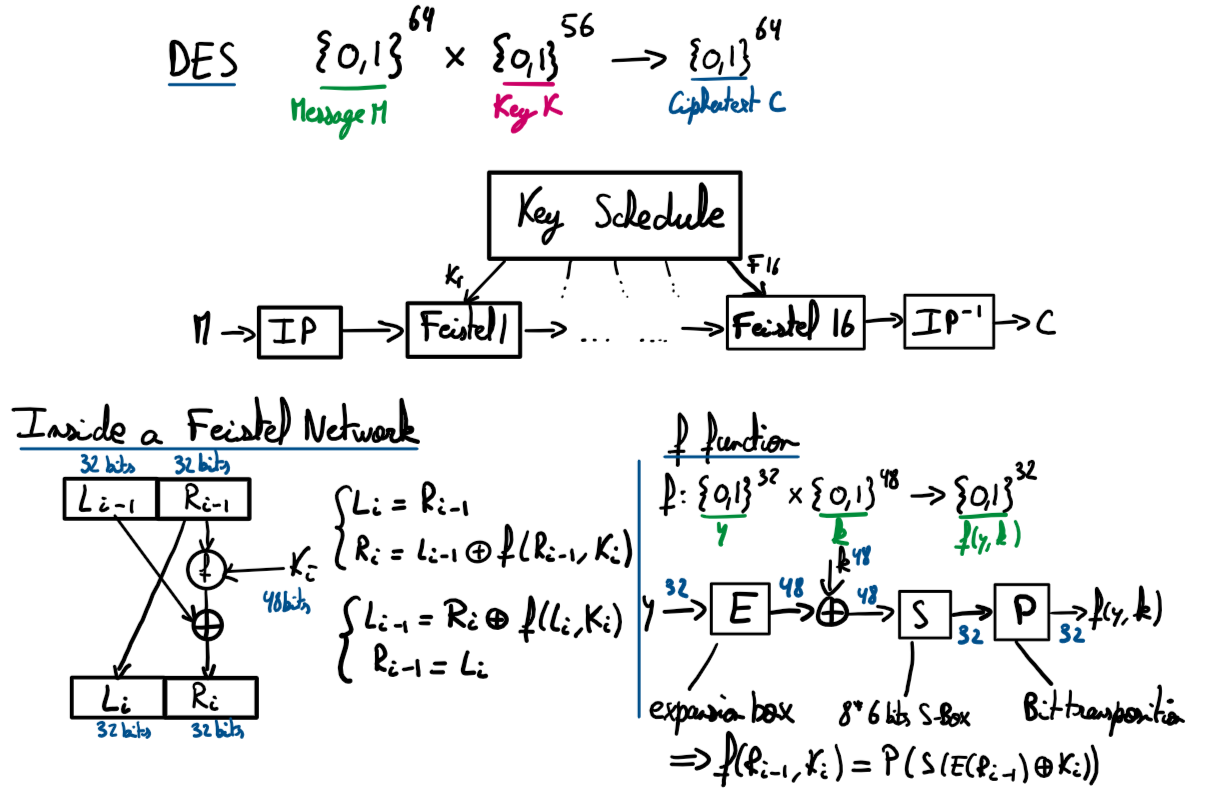 DES {0,1}^64 × {0,1}^56 → {0,1}^64
Message M Key K Ciphertext C
Key Schedule
K1 F16
M → IP → Feistel 1 → .... .... → Feistel 16 → IP^-1 → C
Inside a Feistel Network
32 bits 32 bits
L_{i-1} R_{i-1}
f K_i
48 bits
⊕
L_i R_i
32 bits 32 bits
L_i = R_{i-1}
R_i = L_{i-1} ⊕ f(R_{i-1}, K_i)
L_{i-1} = R_i ⊕ f(L_i, K_i)
R_{i-1} = L_i
f function
f: {0,1}^32 × {0,1}^48 → {0,1}^32
y k f(y,k)
k 48
y 32 → E 48 → ⊕ 48 → S 32 → P 32 → f(y,k)
expansion box 8*6 bits S-Box Bit transposition
⇒ f(R_{i-1}, K_i) = P(S(E(R_{i-1}) ⊕ K_i))